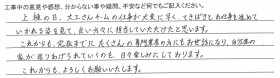 工事中の意見や感想、分からない事や疑問、不安など何でもご記入ください。
上棟の日、大工さんチームの仕事が大変に早く、てきぱきとお仕事を進めて
いかれる姿を見て、良い方々に担当していただけたと思います。
これからも、完成までに たくさんの専門業者の方にもお世話になり、自分達の
家が造りあげられていくのを、日々楽しみにしております。
これからも、よろしくお願いいたします。